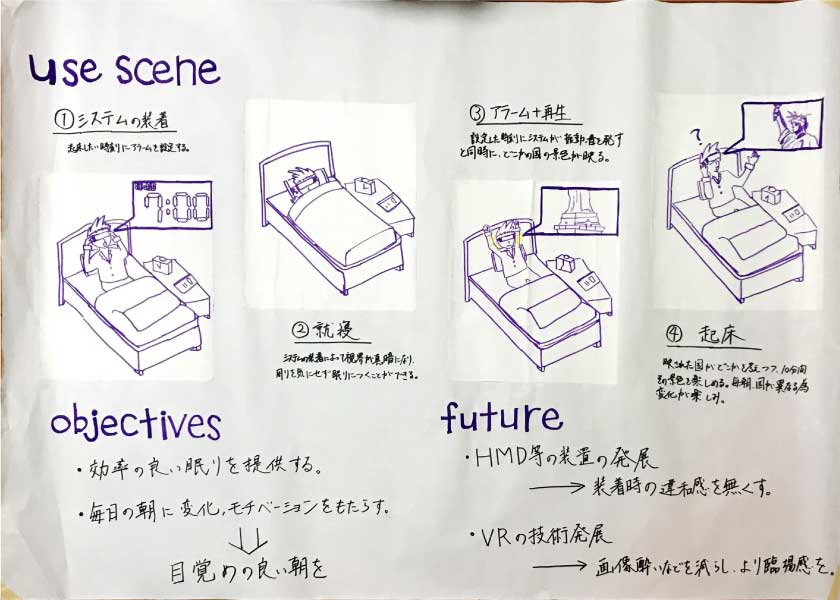 use scene
①システムの装着
起床したい時刻にアラームを設定する。
7:00
②就寝
システムの装着によって視界が真暗になり、
周りを気にせず眠りにつくことができる。
③アラーム+再生
設定した時刻にシステムが振動・音を発す
と同時に、どこかの国の景色が映る。
?
④起床
映された国がどこかを考えつつ、10分間
その景色を楽しめる。毎朝、国が異なる為
変化が楽しみ。
objectives
・効率の良い眠りを提供する。
・毎日の朝に変化、モチベーションをもたらす。
目覚めの良い朝を
future
・HMD等の装置の発展
→装着時の違和感を無くす。
・VRの技術発展
→画像酔いなどを減らし、より臨場感を。